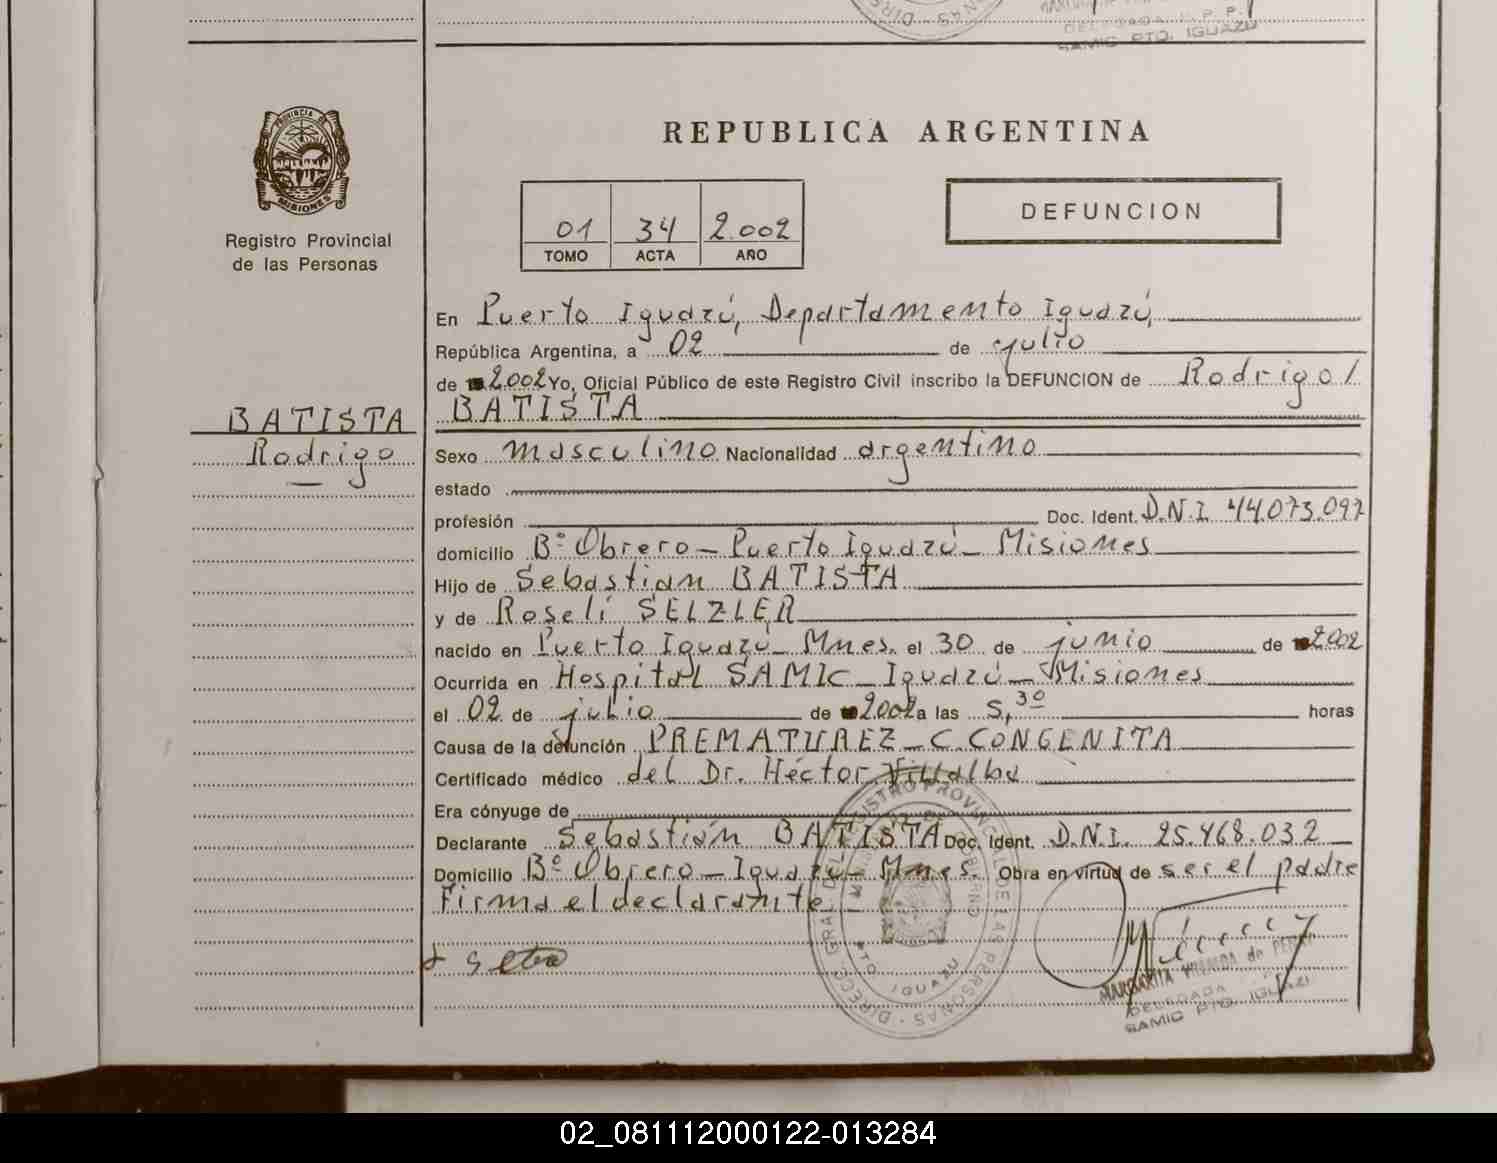 SAMIC PTO. IGUAZU
PROVINCIA DE
MISIONES
Registro Provincial
de las Personas
REPUBLICA ARGENTINA
01 34 2.002
TOMO ACTA AÑO
DEFUNCION
En Puerto Iguazú, Departamento Iguazú,
República Argentina, a 02 de julio
de 2.002 Yo, Oficial Público de este Registro Civil inscribo la DEFUNCION de Rodrigo/
BATISTA
BATISTA
Rodrigo
Sexo masculino Nacionalidad argentino
estado
profesión Doc. Ident. D.N.I. 44.073.097
domicilio Bº Obrero - Puerto Iguazú - Misiones
Hijo de Sebastian BATISTA
y de Roselí SELZLER
nacido en Puerto Iguazú - Mnes. el 30 de junio de 2002
Ocurrida en Hospital SAMIC - Iguazú - Misiones
el 02 de julio de 2002 a las 5,30 horas
Causa de la defunción PREMATUREZ - C. CONGENITA
Certificado médico del Dr. Héctor Villalba
Era cónyuge de
Declarante Sebastián BATISTA Doc. Ident. D.N.I. 25.468.032
Domicilio Bº Obrero - Iguazú - Mnes. Obra en virtud de ser el padre
Firma el declarante
MARGARITA de
DELEGADA
SAMIC PTO. IGUAZU
02_081112000122-013284